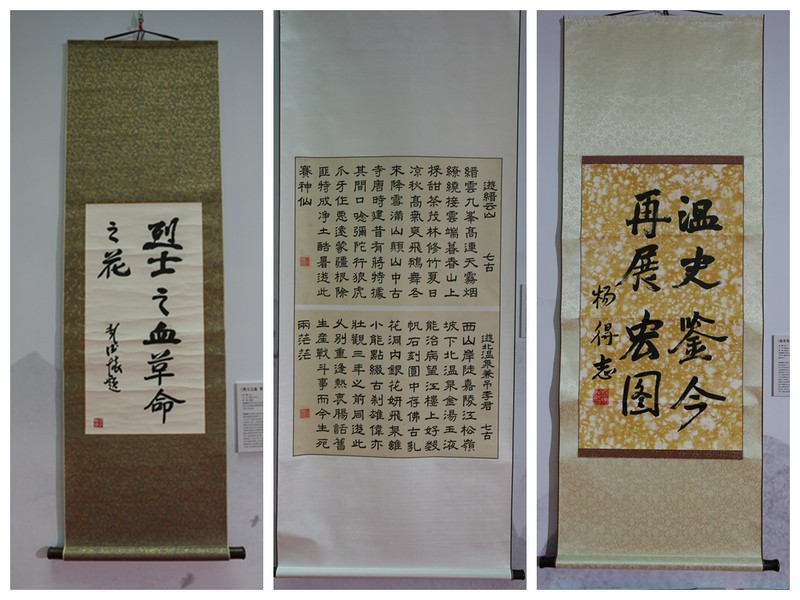 烈士之血革命
之花
彭德怀题
遊縉云山 七古
縉雲九峯高連天霧烟
繚繞接雲端暮春山上
採甜茶茂林修竹夏日
凉秋高氣爽飛鴉舞冬
來降雪滿山顛山中古
寺唐時建昔有蔣特據
其間口唸彌陀行狼虎
爪牙作惡遠蒙疆根除
匪特成净土酷暑遊此
賽神仙
遊北温泉兼吊李君 七古
西山岸陡嘉陵江松嶺
坡下北温泉金湯玉液
能治病望江樓上好殺
帆石刻園中存佛古乳
花洞内銀花妍飛泉維
小能點級古刹雄偉亦
壯觀三年之前同遊此
乆別重逢熱衷腸話舊
生產戰斗事而今生死
兩茫茫
温史鉴今
再展宏图
杨得志